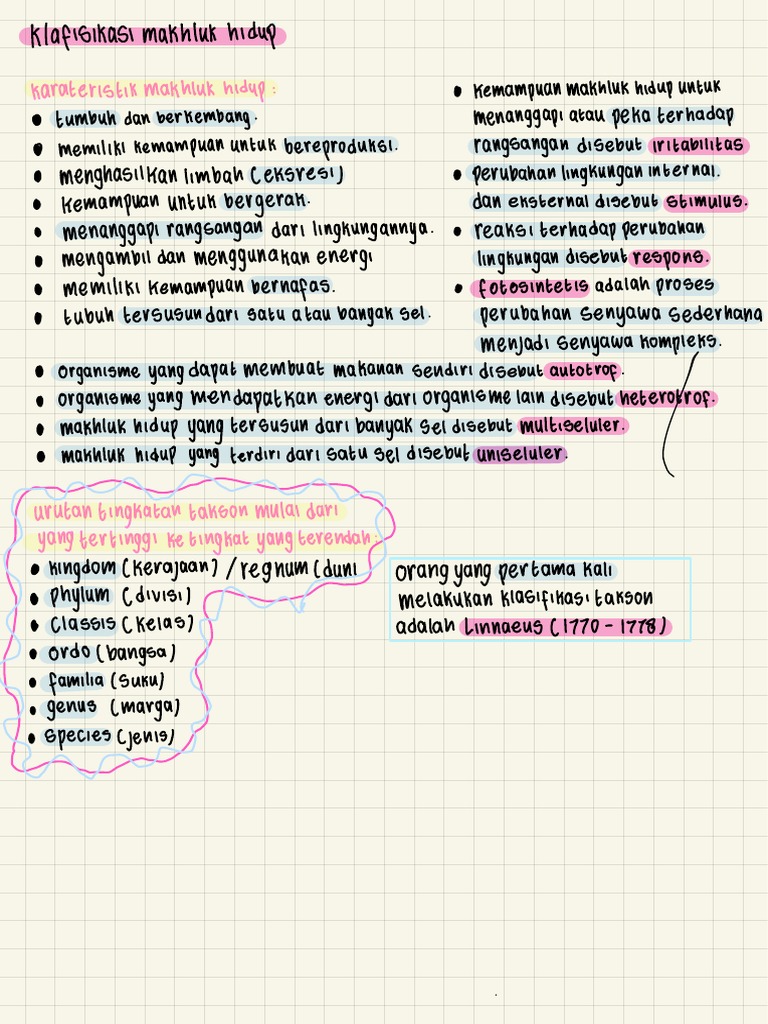 klafisikasi makhluk hidup
karateristik makhluk hidup :
• tumbuh dan berkembang.
• memiliki kemampuan untuk bereproduksi.
• menghasilkan limbah (eksresi)
• kemampuan untuk bergerak.
• menanggapi rangsangan dari lingkungannya.
• mengambil dan menggunakan energi
• memiliki kemampuan bernafas.
• tubuh tersusun dari satu atau bangak sel.
• kemampuan makhluk hidup untuk
menanggapi atau peka terhadap
rangsangan disebut iritabilitas
• perubahan lingkungan internal.
dan eksternal disebut stimulus.
• reaksi terhadap perubahan
lingkungan disebut respons.
• fotosintetis adalah proses
perubahan senyawa sederhana
menjadi senyawa kompleks.
• organisme yang dapat membuat makanan sendiri disebut autotrof.
• organisme yang mendapatkan energi dari organisme lain disebut heterotrof.
• makhluk hidup yang tersusun dari banyak sel disebut multiseluler.
• makhluk hidup yang terdiri dari satu sel disebut uniseluler.
urutan tingkatan takson mulai dari
yang tertinggi ke tingkat yang terendah:
• kingdom (kerajaan) / regnum (duni
• phylum (divisi)
• classis (kelas)
• ordo (bangsa)
• familia (suku)
• genus (marga)
• species (jenis)
orang yang pertama kali
melakukan klasifikasi takson
adalah Linnaeus (1770 - 1778)